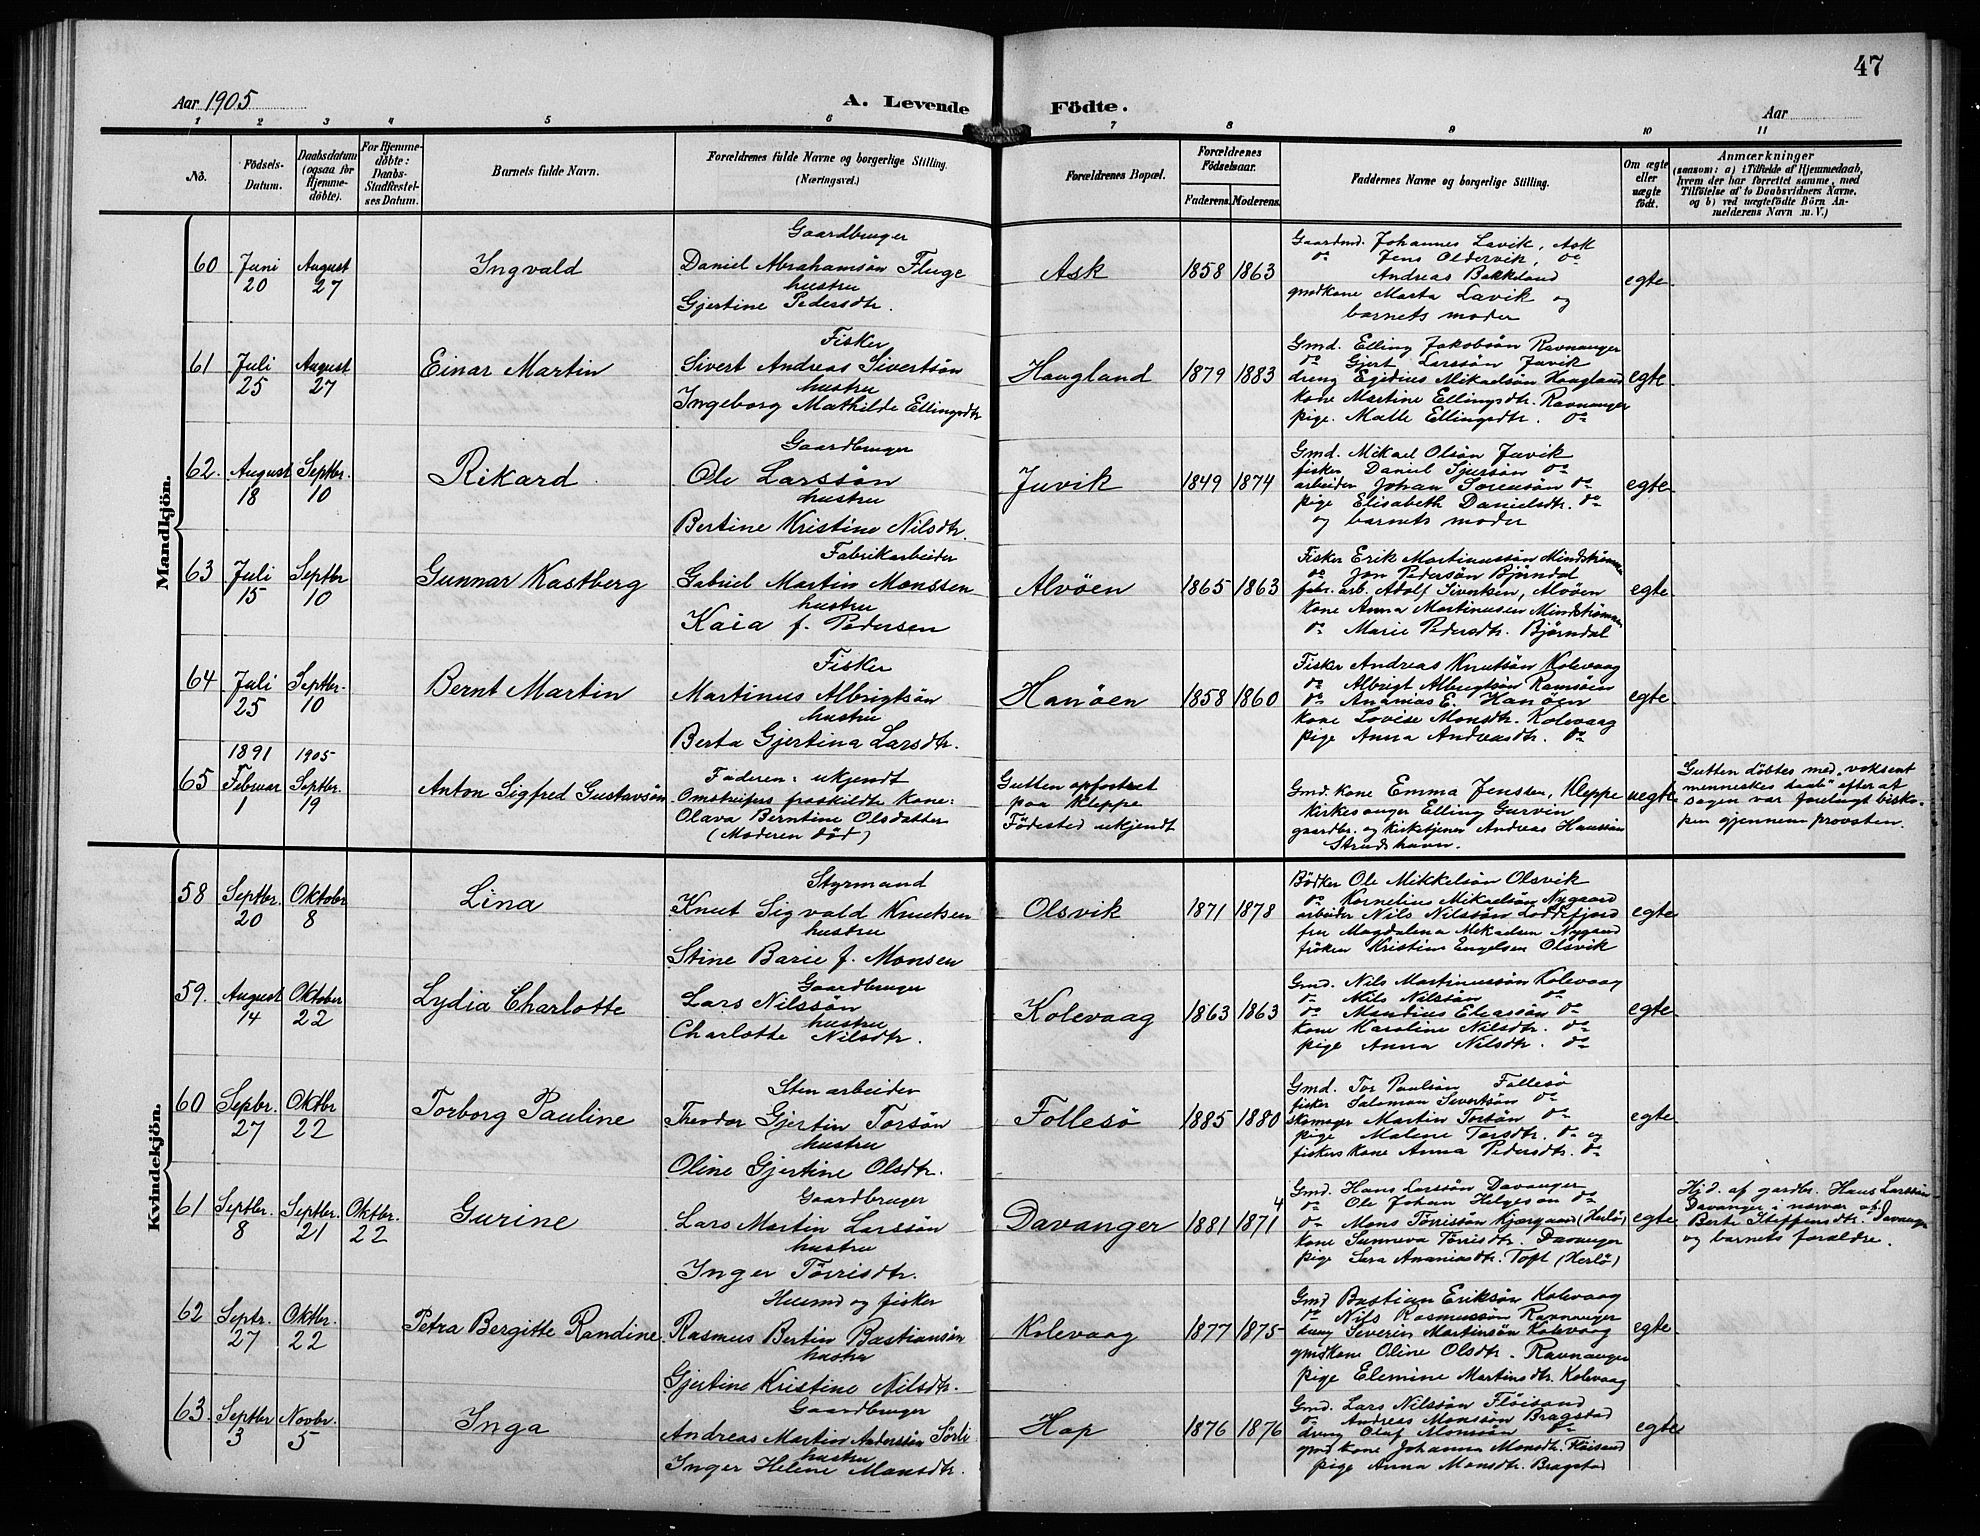 47
Aar 1905
A. Levende Födte.
Aar
1 2 3 4 5 6 7 8 9 10 11
No.
Födsels-Datum.
Daabsdatum (ogsaa för Hjemme-döbte).
For Hjemme-döbte: Daabs-Stadfæstel-ses Datum.
Barnets fulde Navn.
Forældrenes fulde Navne og borgerlige Stilling.
(Næringsvei.)
Forældrenes Bopæl.
Forældrenes Födselsaar.
Faderens. Moderens.
Faddernes Navne og borgerlige Stilling.
Om ægte eller uægte födt.
Anmærkninger
(saasom: a) i Tilfælde af Hjemmedaab,
hvem der har forrettet samme, med
Tilföielse af to Daabsvidners Navne,
og b) ved uægtefödte Börn An-
melderens Navn m. V.)
Mandkjön.
60 Juni 20 August 27 Ingvald
Gaardbruger
Daniel Abrahamsön Fluge
hustru
Gjertine Pedersdtr.
Ask 1858 1863
Gaardmd. Johannes Lavik, Ask
do Jens Oldervik, do
Andreas Bakkeland
gmdkone Marta Lavik og
barnets moder
egte
61 Juli 25 August 27 Einar Martin
Fisker
Sivert Andreas Sivertsön
hustru
Ingeborg Mathilde Ellingsdtr
Haugland 1879 1883
Gmd. Elling Jakobsön Ravnanger
do Gjert Larssön Juvik
dreng Egidius Mikaelsön Haugland
kone Martine Ellingsdtr. Ravnanger
pige Malle Ellingsdtr. do
egte
62. August 18 Septbr. 10 Rikard
Gaardbruger
Ole Larssön
hustru
Bertine Kristine Nilsdtr.
Juvik 1849 1874
Gmd. Mikael Olsön Juvik
fisker Daniel Sjursön do
arbeider Johan Sörensön do
pige Elisabeth Danielsdtr. do
og barnets moder
egte
63 Juli 15 Septbr 10 Gunnar Kastberg
Fabrikarbeider
Gabriel Martin Monssen
hustru
Kaia f. Pedersen
Alvöen 1865 1863
Fisker Erik Martinussön Mindeströmmen
do Jon Pedersön Bjørndal
fabr. arb. Adolf Sivertsen, Alvöen
kone Anna Martinusen Mindströmmen
do Marie Pedersdtr. Bjørndal
egte
64 Juli 25 Septbr. 10 Bernt Martin
Fisker
Martinus Albrigtsön
hustru
Berta Gjertina Larsdtr.
Hanöen 1858 1860
Fisker Andreas Knutsön Kolevaag
do Albrigt Albrigtsön Ramsöen
do Ananias E. Hanöen
kone Lovise Monsdtr. Kolevaag
pige Anna Andreasdtr. do
egte
65 1891 Februar 1 1905 Septbr. 19 Anton Sigfred Gustavsön
Faderen: ukjendt
Omstreifers fraskildte kone:
Olava Berntine Olsdatter
(Moderen död)
Gutten opfostret
paa Kleppe
Födested ukjendt
Gmd. kone Emma Jensen, Kleppe
kirkesanger Elling Gurvin
gaardbr. og kirketjener Andreas Hanssön
Strudshavn.
uegte
Gutten döbtes med "voksent
menneskes daab" efter at
sagen var forelagt bisko-
pen gjennem provsten.
Kvindekjön.
58 Septbr. 20 Oktober 8 Lina
Styrmand
Knut Sigvald Knutsen
hustru
Stine Barie f. Monsen
Olsvik 1871 1878
Bödker Ole Mikkelsön Olsvik
do Kornelius Mikaelsön Nygaard
arbeider Nils Nilssön Loddefjord
fru Magdalena Mikaelsen Nygaard
fröken Kristine Engelsen Olsvik
egte
59. August 14 Oktober 22 Lydia Charlotte
Gaardbruger
Lars Nilssön
hustru
Charlotte Nilsdtr.
Kolevaag 1863 1863
Gmd. Nils Martinussön Kolevaag
do Nils Nilssön do
do Mandius Eliassön do
kone Karoline Nilsdtr. do
pige Anna Nilsdtr. do
egte
60 Sepbr. 27 Oktbr 22 Torborg Pauline
Stenarbeider
Theodor Gjertin Torsön
hustru
Oline Gjertine Olsdtr.
Follesö 1885 1880
Gmd. Tor Paulsön Follesö
fisker Salomon Sivertsön do
skomager Martin Torsön do
pige Malene Torsdtr. do og
fiskers kone Anna Pedersdtr. do
egte
61 Septbr. 8 Septbr. 21 Oktbr. 22 Gurine
Gaardbruger
Lars Martin Larssön
hustru
Inger Tørrisdtr.
Davanger 1881 1871 4
Gmd. Hans Larssön Davanger
do Ole Johan Helgesön do
do Mons Tørrisön Kjærgaard (Herlö)
kone Sunneva Tørrisdtr. Davanger
pige Sara Ananiasdtr. Toft (Herlö)
egte
Hjd. af gardbr. Hans Larssön
Davanger i nærvær af
Berte Steffensdtr. Davanger
og barnets forældre.
62 Septr. 27 Oktbr. 22 Petra Bergitte Randine
Huusmd og fisker
Rasmus Bertin Bastiansön
hustru
Gjertine Kristine Nilsdtr.
Kolevaag 1877 1875
Gmd Bastian Eriksön Kolevaag
do Nils Rasmussön Ravnanger
dreng Severin Martinsön Kolevaag
gmdkone Oline Olsdtr. Ravnanger
pige Elemine Martinsdtr. Kolevaag
egte
63. Septbr 3 Novbr. 5 Inga
Gaardbruger
Andreas Martin Anderssön Sörli
hustru
Inger Helene Monsdtr.
Hop 1876 1876
Gmd. Lars Nilssön Flöisand
do Andreas Monssön Bragstad
dreng Olaf Monsön do
gmdkone Johanna Monsdtr. Flöisand
pige Anna Monsdtr. Bragstad
egte